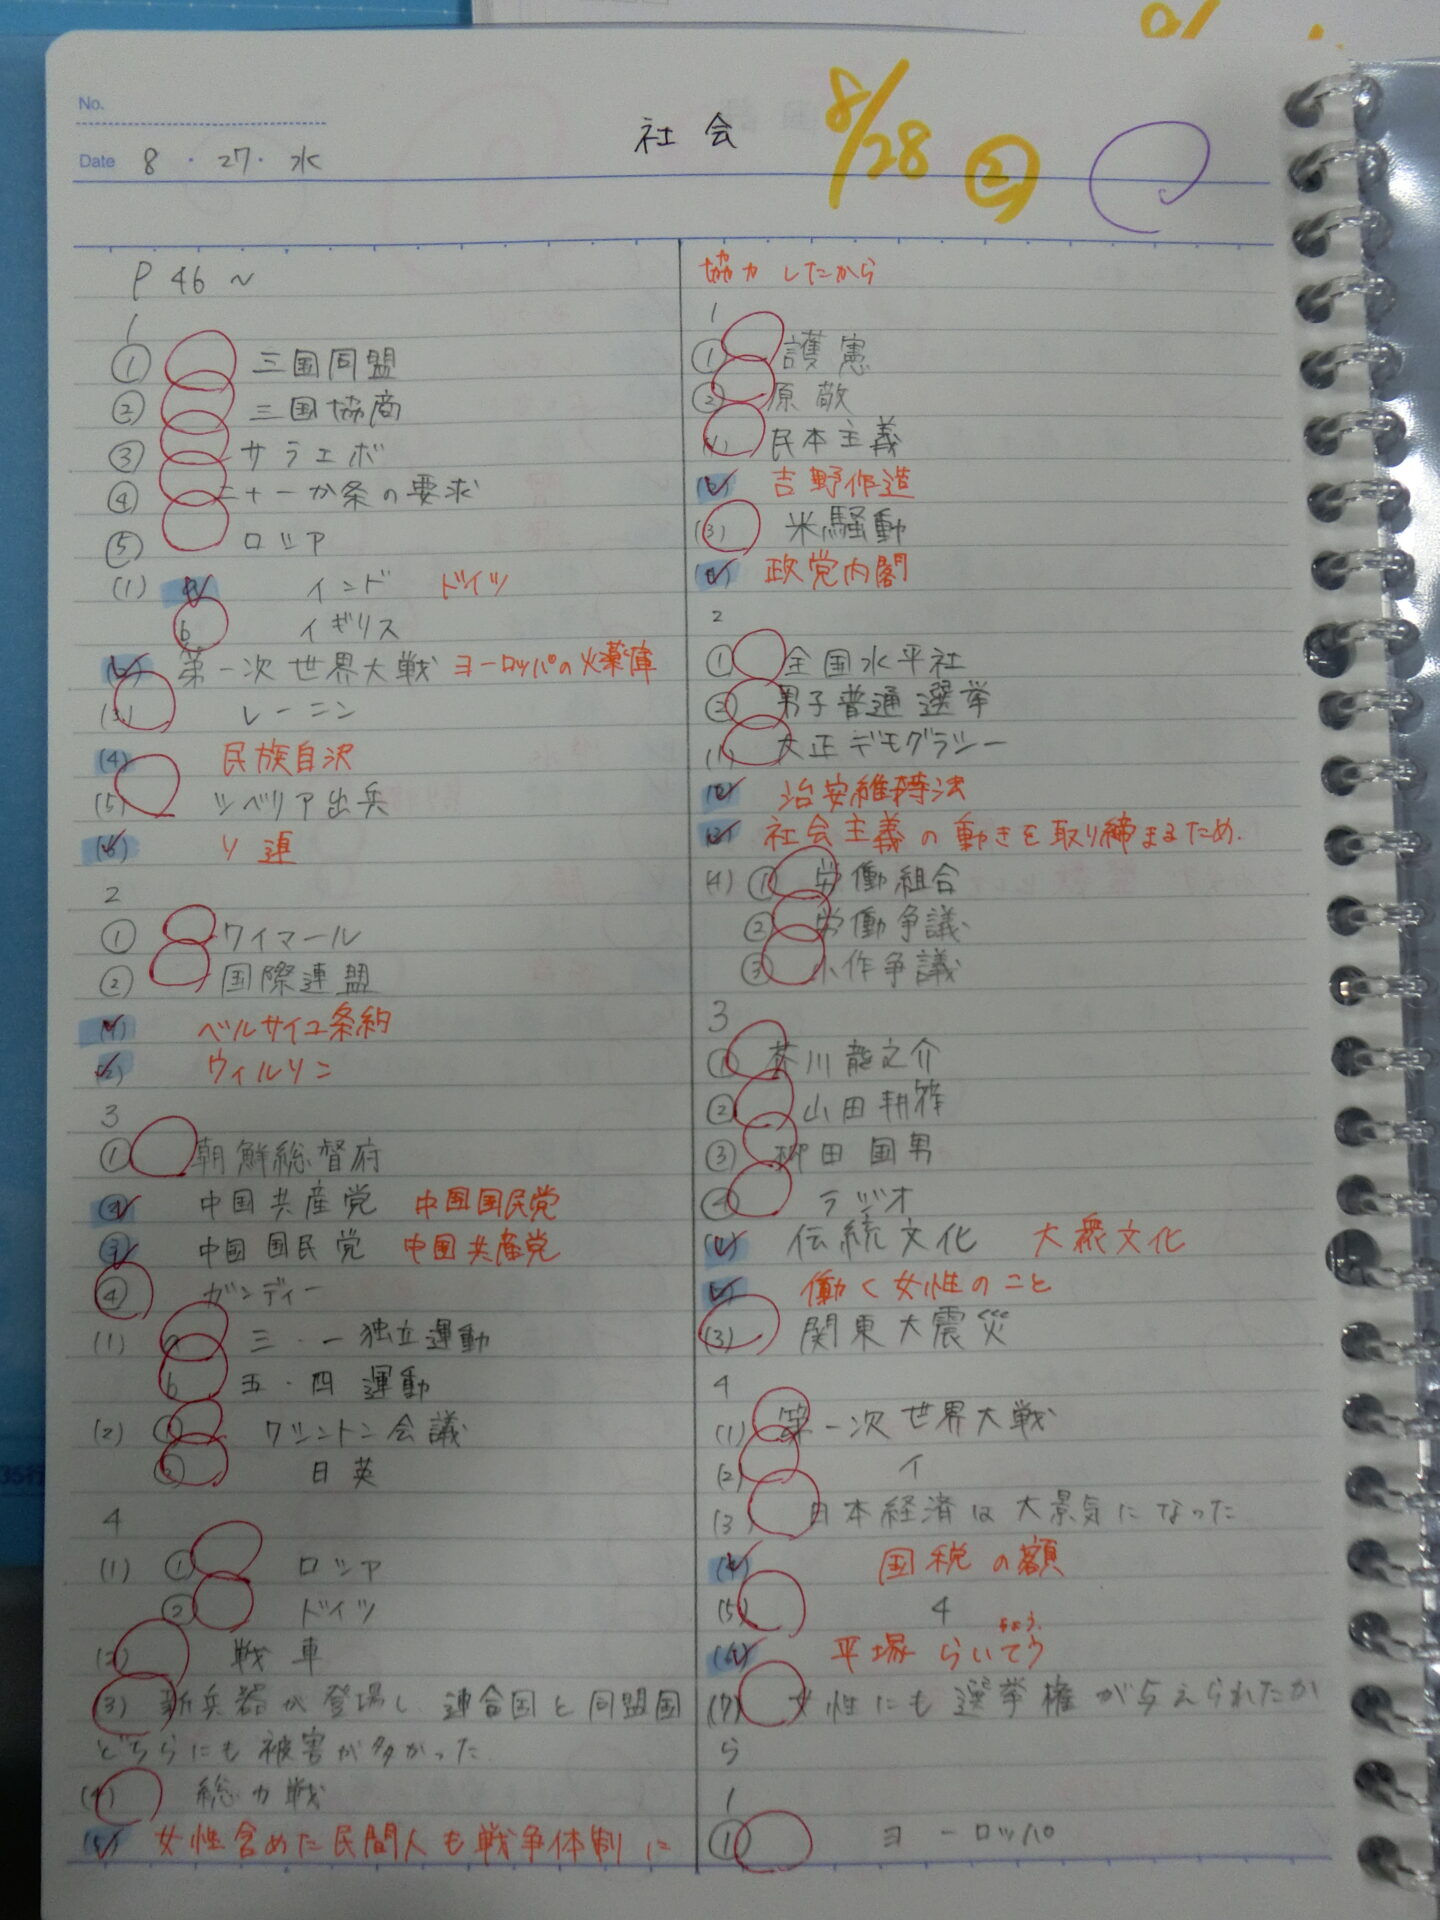 No.
Date 8 ・ 27 ・ 水
社会
8/28 ②
P 46 ~
1
① 三国同盟
② 三国協商
③ サラエボ
④ 二十一か条の要求
⑤ ロシア
(1) a インド ドイツ
b イギリス
(2) 第一次世界大戦 ヨーロッパの火薬庫
(3) レーニン
(4) 民族自決
(5) シベリア出兵
(6) ソ連
2
① ワイマール
② 国際連盟
(1) ベルサイユ条約
(2) ウィルソン
3
① 朝鮮総督府
② 中国共産党 中国国民党
③ 中国国民党 中国共産党
④ ガンディー
(1) a 三・一独立運動
b 五・四運動
(2) ① ワシントン会議
② 日英
4
(1) ① ロシア
② ドイツ
(2) 戦車
(3) 新兵器が登場し、連合国と同盟国
どちらにも被害が多かった
(4) 総力戦
(5) 女性含めた民間人も戦争体制に
協力したから
1
① 護憲
② 原敬
(1) 民本主義
(2) 吉野作造
(3) 米騒動
(4) 政党内閣
2
① 全国水平社
② 男子普通選挙
(1) 大正デモクラシー
(2) 治安維持法
(3) 社会主義の動きを取り締まるため.
(4) ① 労働組合
② 労働争議
③ 小作争議
3
① 芥川龍之介
② 山田耕筰
③ 柳田国男
④ ラジオ
(1) 伝統文化 大衆文化
(2) 働く女性のこと
(3) 関東大震災
4
(1) 第一次世界大戦
(2) イ
(3) 日本経済は大景気になった
(4) 国税の額
(5) 4
(6) 平塚らいてう
ちょう
(7) 女性にも選挙権が与えられたか
ら
1
① ヨーロッパ
35行